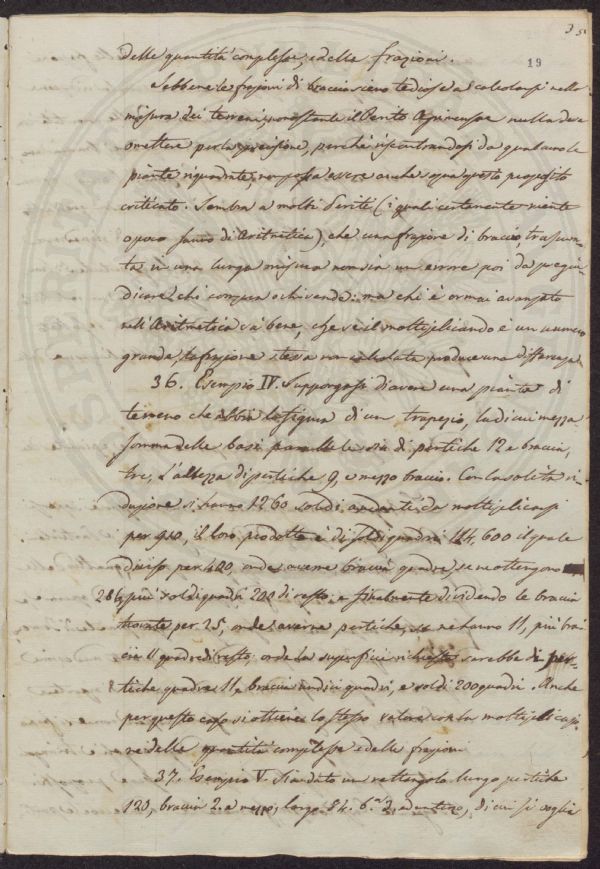 35
19
delle quantità complesse, e delle frazioni.
Sebbene le frazioni di braccia sieno tediose a calcolarsi nella
misura dei terreni, nonostante il Perito Agrimensore nulla deve
omettere per la precisione, perché riscontrandosi da qualcuno le
piante riquadrate, non possa essere anche a questo proposito
criticato. Sembra a molti Periti (i quali certamente niente
o poco sanno di Aritmetica), che una frazione di braccio, trascura-
ta in una lunga misura non sia un errore poi da pregiu-
dicare chi compra o chi vende: ma chi è ormai avanzato
nell'Aritmetica sà bene, che se il moltiplicando è un numero
grande, la frazione stessa non calcolata produce una differenza.
36. Esempio IV. Suppongasi di avere una pianta di
terreno che abbia la figura di un trapezio, la di cui mezza
somma delle basi parallele sia di pertiche 12 e braccia
tre, L'altezza di pertiche 9, e mezzo braccio. Con la solita ri-
duzione si hanno 1260 soldi andanti da moltiplicarsi
per 910, il loro prodotto è di soldi quadri 114,600 il quale
diviso per 400, onde avere braccia quadre, se ne ottengono
286, più soldi quadri 200 di resto; e finalmente dividendo le braccia
trovate per 25, onde averne pertiche, se ne hanno 11, più brac-
cia 11 quadre di resto; onde la superficie richiesta sarebbe di per-
tiche quadre 11, braccia undici quadri, e soldi 200 quadri. Anche
per questo caso si ottiene lo stesso valore con la moltiplicazio-
ne delle quantità complesse e delle frazioni
37. Esempio V. Sia dato un rettangolo lungo pertiche
120, braccia 2. e mezzo, largo 84. 6 ed un terzo, di cui si voglia